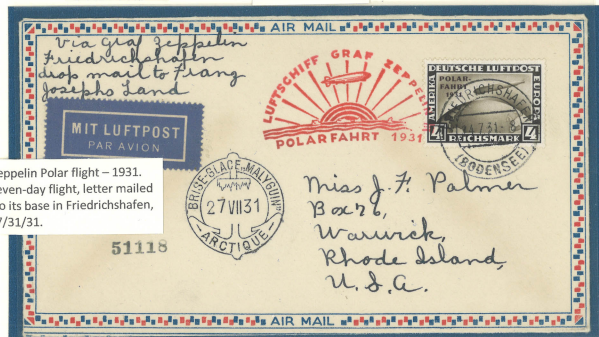 AIR MAIL
via Graf Zeppelin
Friedrichshafen
drop mail to Franz
Josephs Land
LUFTSCHIFF GRAF ZEPPELIN
POLARFAHRT 1931
DEUTSCHE LUFTPOST
POLAR-
FAHRT
1931
AMERIKA
EUROPA
4 REICHSMARK 4
FRIEDRICHSHAFEN
24.7.31.8
(BODENSEE)
MIT LUFTPOST
PAR AVION
eppelin Polar flight – 1931.
even-day flight, letter mailed
o its base in Friedrichshafen,
7/31/31.
BRISE-GLACE „MALYGUIN"
27 VII 31
ARCTIQUE
51118
Miss J. F. Palmer
Box 76,
Warwick,
Rhode Island,
U.S.A.
AIR MAIL